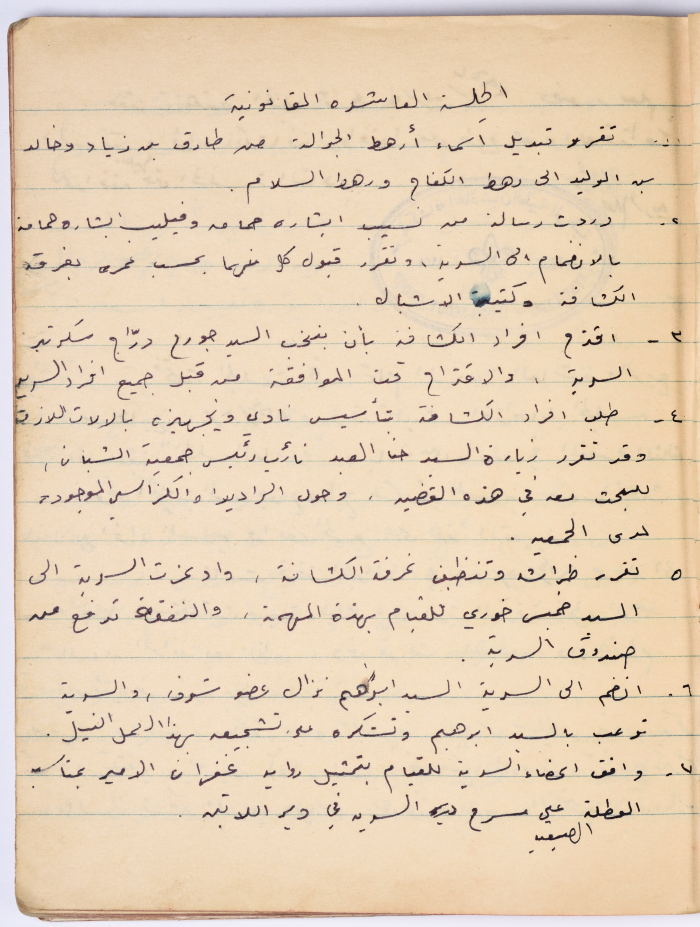 الجلسة العاشره القانونية
١- تقرر تبديل اسماء أرهط الجوالة من طارق بن زياد وخالد
بن الوليد الى رهط الكفاح ورهط السلام .
٢- وردت رسالة من نسيب بشاره حمامه وفيليب بشاره حمامه
بالانضمام الى السرية ، وتقرر قبول كل منهما بحسب عمره بفرقة
الكشافة وكتيبة الاشبال .
٣- اقترح افراد الكشافة بأن ينتخب السيد جورج درّاج سكرتير
السرية ، والاقتراح تحت الموافقة من قبل جميع افراد السرية
٤- طلب افراد الكشافة بتأسيس نادي وتجهيزه بالالات اللازمة
وقد تقرر زيارة السيد حنا العبد نائب رئيس جمعية الشبان ,
للبحث معه في هذه القضيه ، وحول الراديو والكراسي الموجودة
لدى الجمعيه .
٥ تقرر طراشة وتنظيف غرفة الكشافة , واوعزت السرية الى
السيد خميس خوري للقيام بهذة المهمة , والنفقة تدفع من
صندوق السرية .
٦- انضم الى السرية السيد ابراهيم نزال عضو شرف ، والسرية
ترحب بالسيد ابرهيم وتشكره على تشجيعه بهذا العمل النبيل .
٧- وافق اعضاء السرية للقيام بتمثيل رواية غفران الامير بمناسبة
العطلة على مسرح السرية في دير اللاتين .
الصيفيه